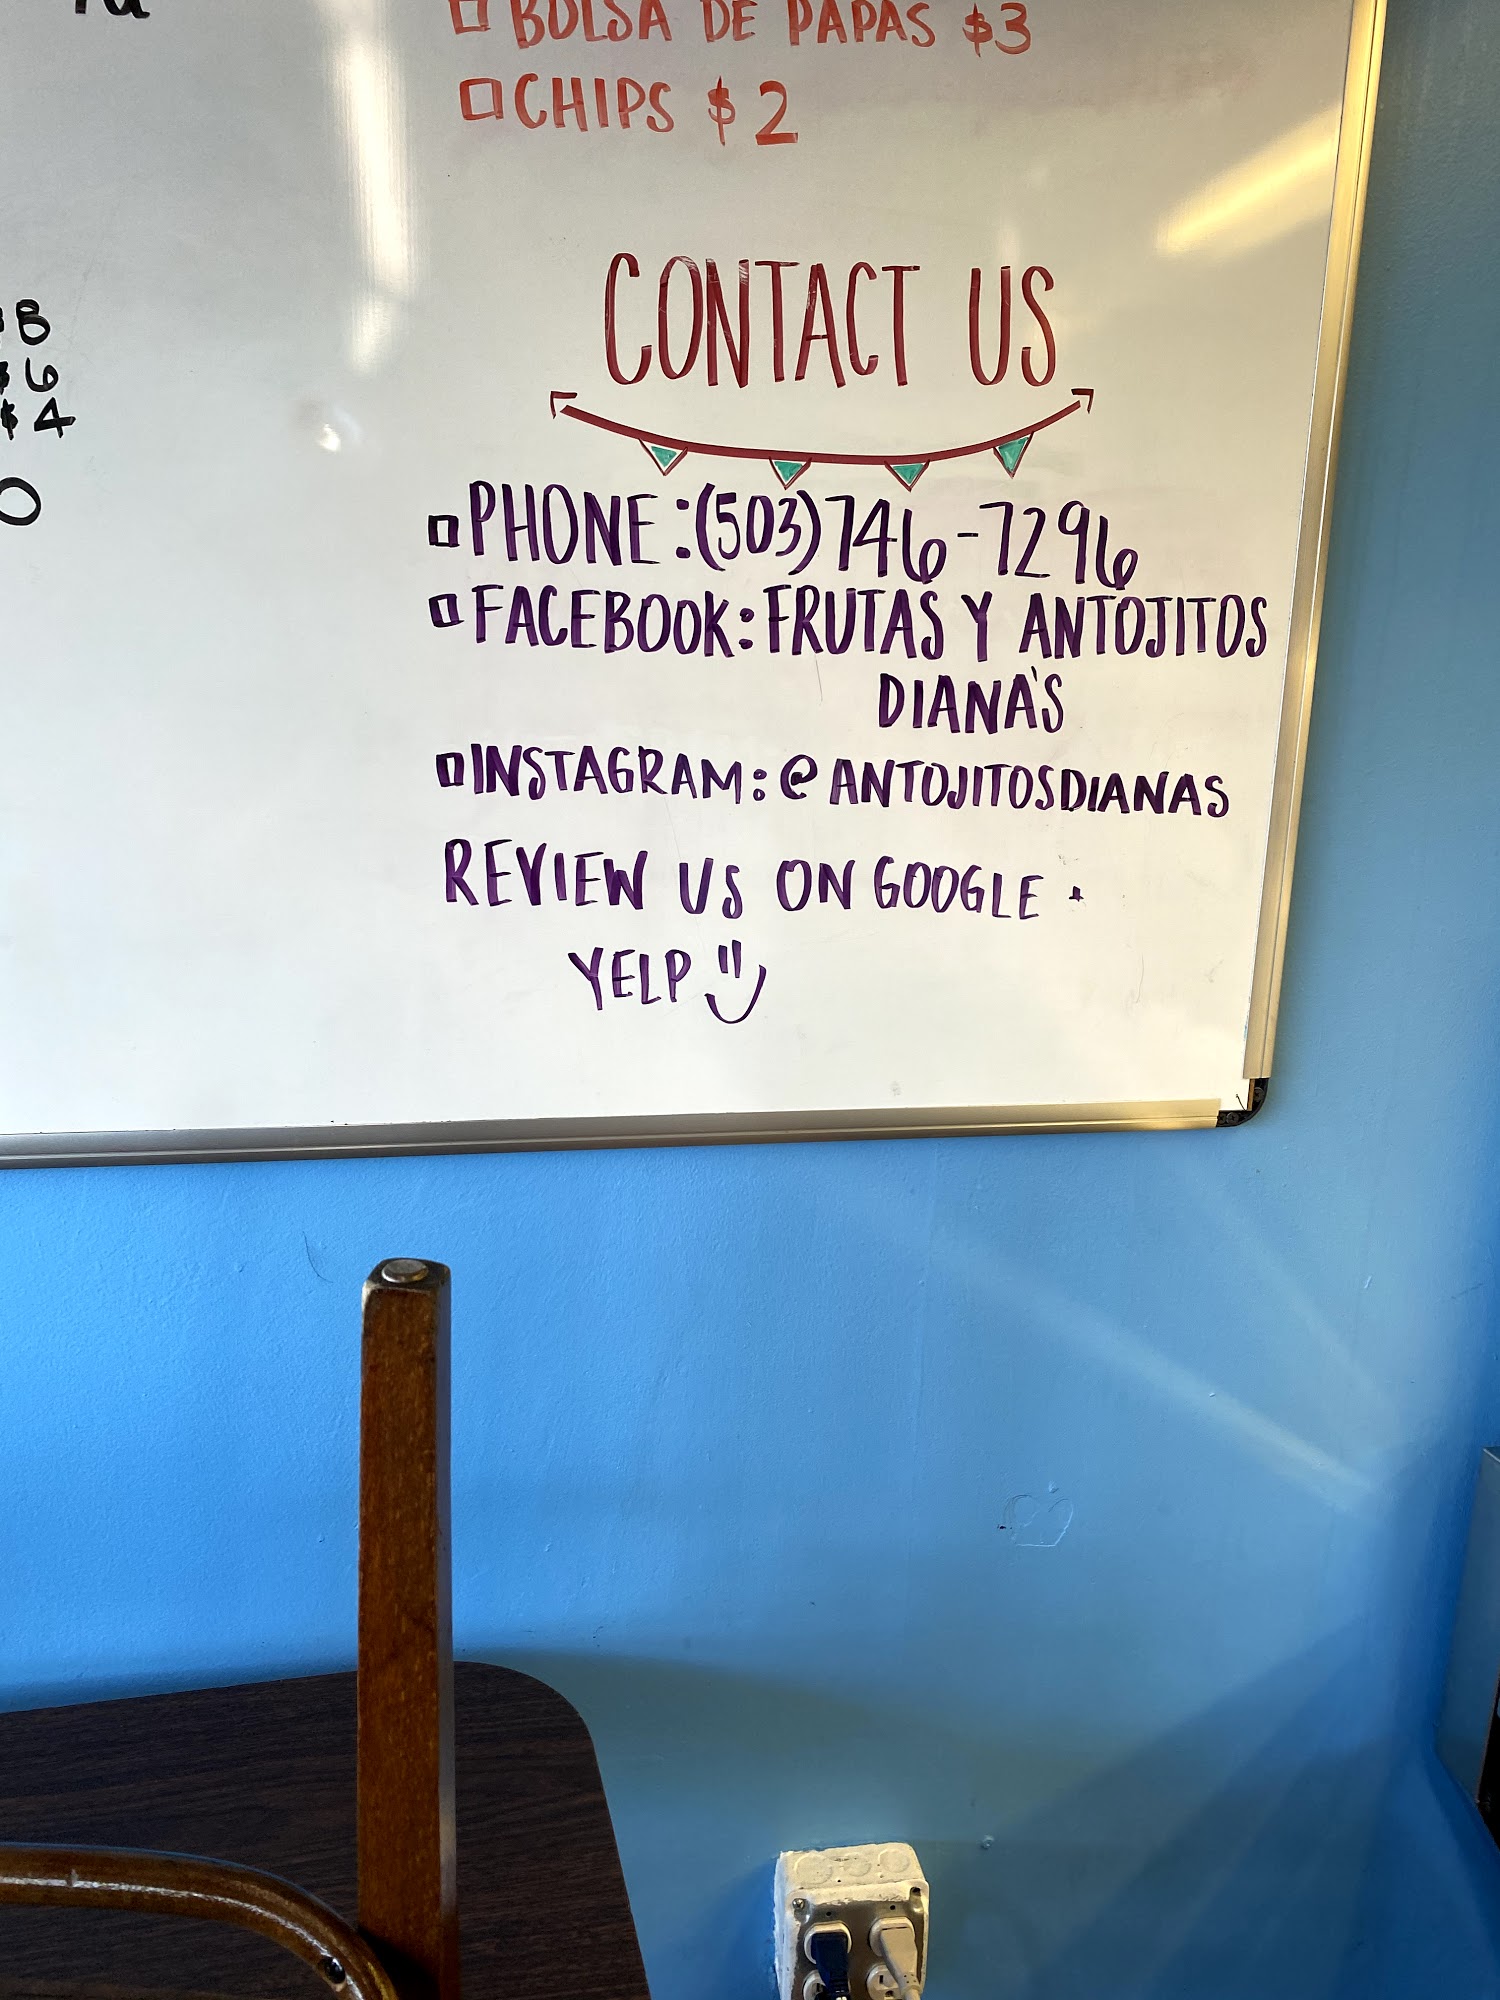 BOLSA DE PAPAS $3
CHIPS $2
8
$6
$4
0
CONTACT US
PHONE:(503)746-7296
FACEBOOK: FRUTAS Y ANTOJITOS
DIANA'S
INSTAGRAM: @ANTOJITOSDIANAS
REVIEW US ON GOOGLE +
YELP